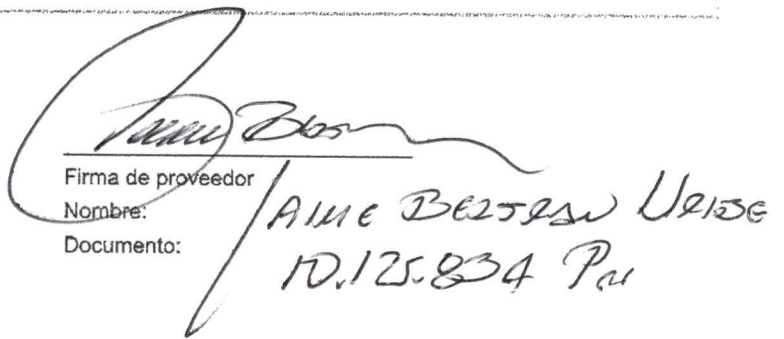 Firma de proveedor
Nombre: JAIME BELTRAN URIBE
Documento: 10.125.834 Pei